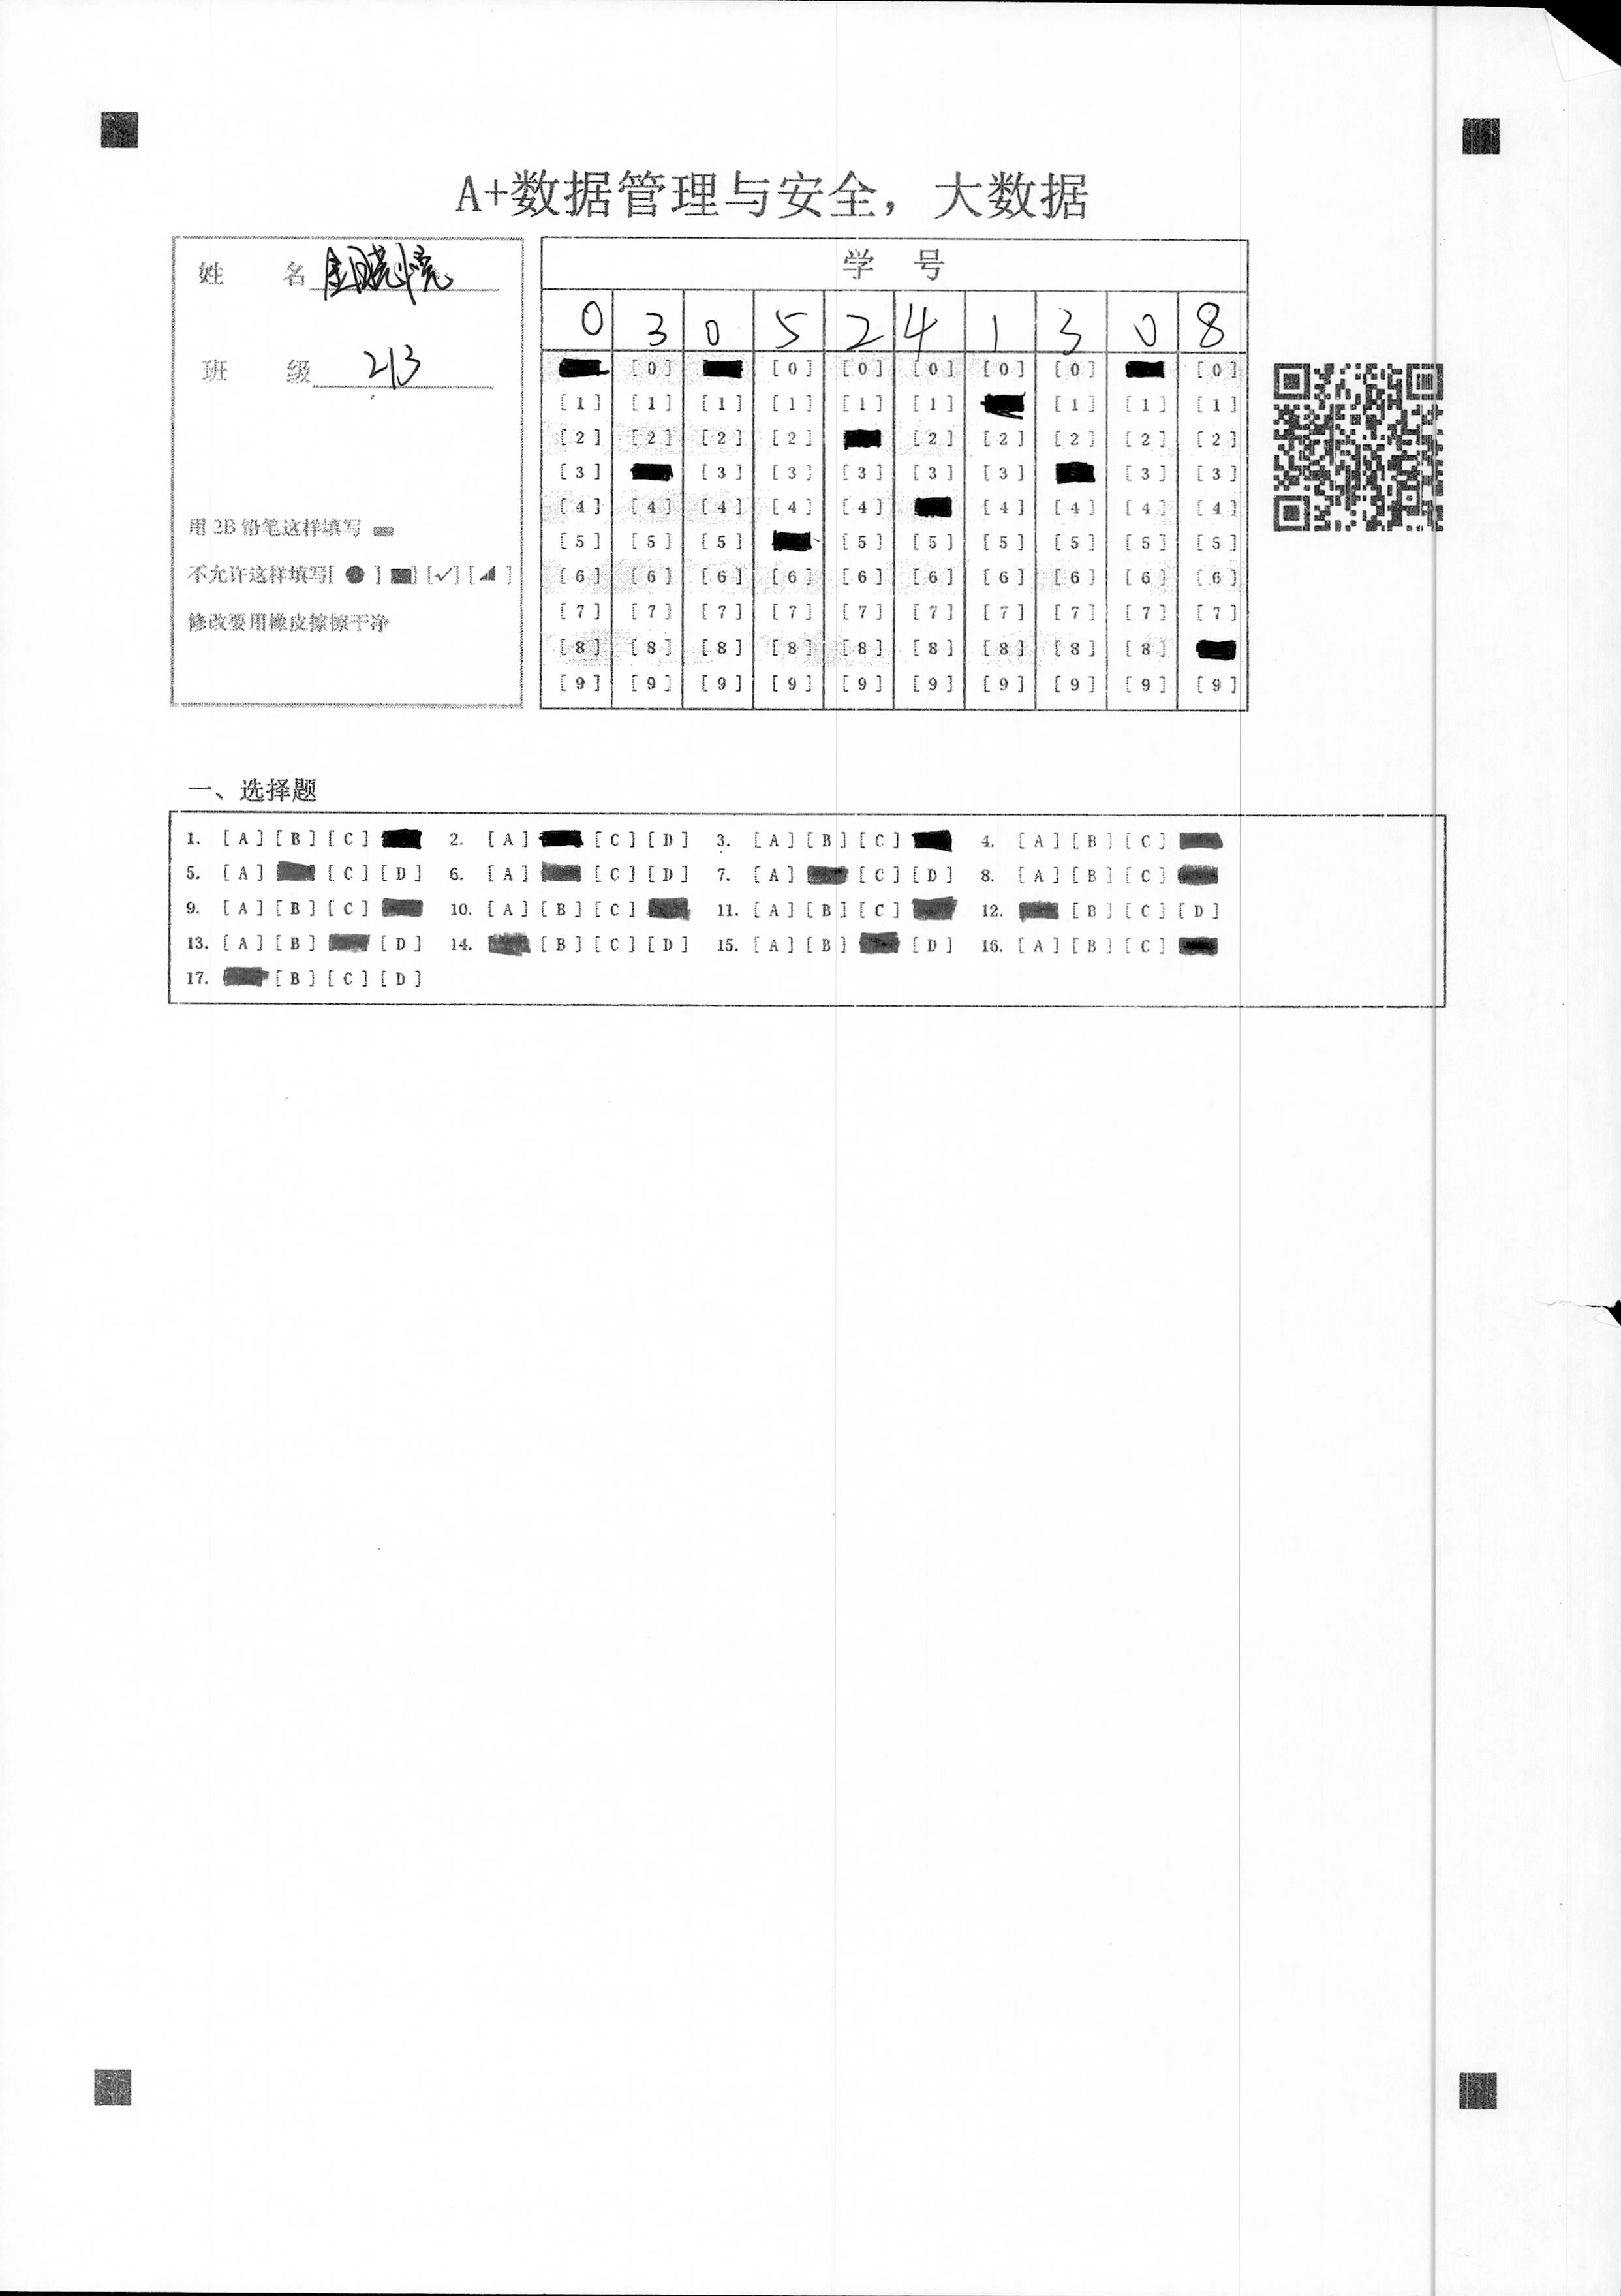 A+数据管理与安全，大数据
姓 名 金晓
班 级 213
用 2B 铅笔这样填写
不允许这样填写[ ● ] ■] [✓] [◢ ]
修改要用橡皮擦擦干净
学 号
0 3 0 5 2 4 1 3 0 8
[0] [0] [0] [0] [0] [0]
[1] [1] [1] [1] [1] [1] [1] [1] [1]
[2] [2] [2] [2] [2] [2] [2] [2] [2]
[3] [3] [3] [3] [3] [3] [3] [3]
[4] [4] [4] [4] [4] [4] [4] [4] [4]
[5] [5] [5] [5] [5] [5] [5] [5] [5]
[6] [6] [6] [6] [6] [6] [6] [6] [6] [6]
[7] [7] [7] [7] [7] [7] [7] [7] [7] [7]
[8] [8] [8] [8] [8] [8] [8] [8] [8]
[9] [9] [9] [9] [9] [9] [9] [9] [9] [9]
一、选择题
1. [A] [B] [C] 2. [A] [C] [D] 3. [A] [B] [C] 4. [A] [B] [C]
5. [A] [C] [D] 6. [A] [C] [D] 7. [A] [C] [D] 8. [A] [B] [C]
9. [A] [B] [C] 10. [A] [B] [C] 11. [A] [B] [C] 12. [B] [C] [D]
13. [A] [B] [D] 14. [B] [C] [D] 15. [A] [B] [D] 16. [A] [B] [C]
17. [B] [C] [D]